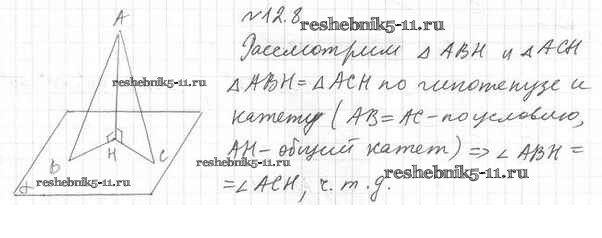 A
B
H
C
α
reshebnik5-11.ru
reshebnik5-11.ru
reshebnik5-11.ru
reshebnik5-11.ru
reshebnik5-11.ru
№12.8
Рассмотрим △ ABH и △ ACH
△ ABH = △ ACH по гипотенузе и
катету (AB = AC - по условию,
AH - общий катет) => ∠ ABH =
= ∠ ACH, ч. т. д.